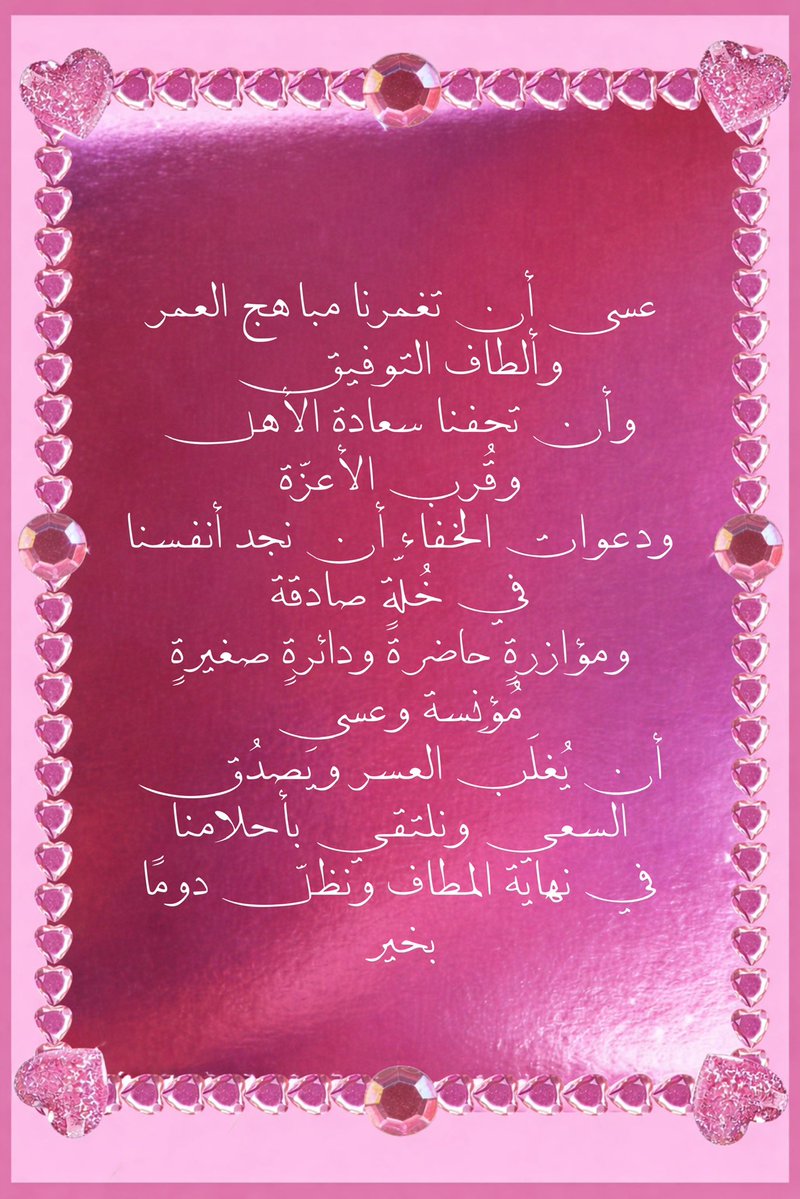 عسى أن تغمرنا مباهج العمر
وألطاف التوفيق
وأن تحفنا سعادة الأهل
وقُرب الأعزّة
ودعوات الخفاء أن نجد أنفسنا
في خُلّةٍ صادقة
ومؤازرةٍ حاضرة ودائرةٍ صغيرةٍ
مُؤنسة وعسى
أن يُغلَب العسر ويَصدُق
السعي ونلتقي بأحلامنا
في نهاية المطاف ونظلّ دومًا
بخير